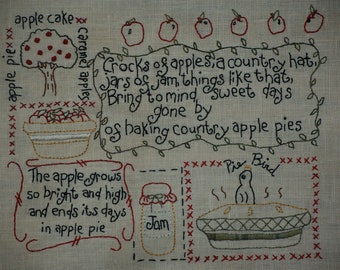 apple cake
apple pie
Caramel apples
Crocks of apples, a country hat,
jars of jam, things like that,
Bring to mind sweet days
gone by
of baking country apple pies
The apple grows
so bright and high
and ends its days
in apple pie
Jam
Pie Bird